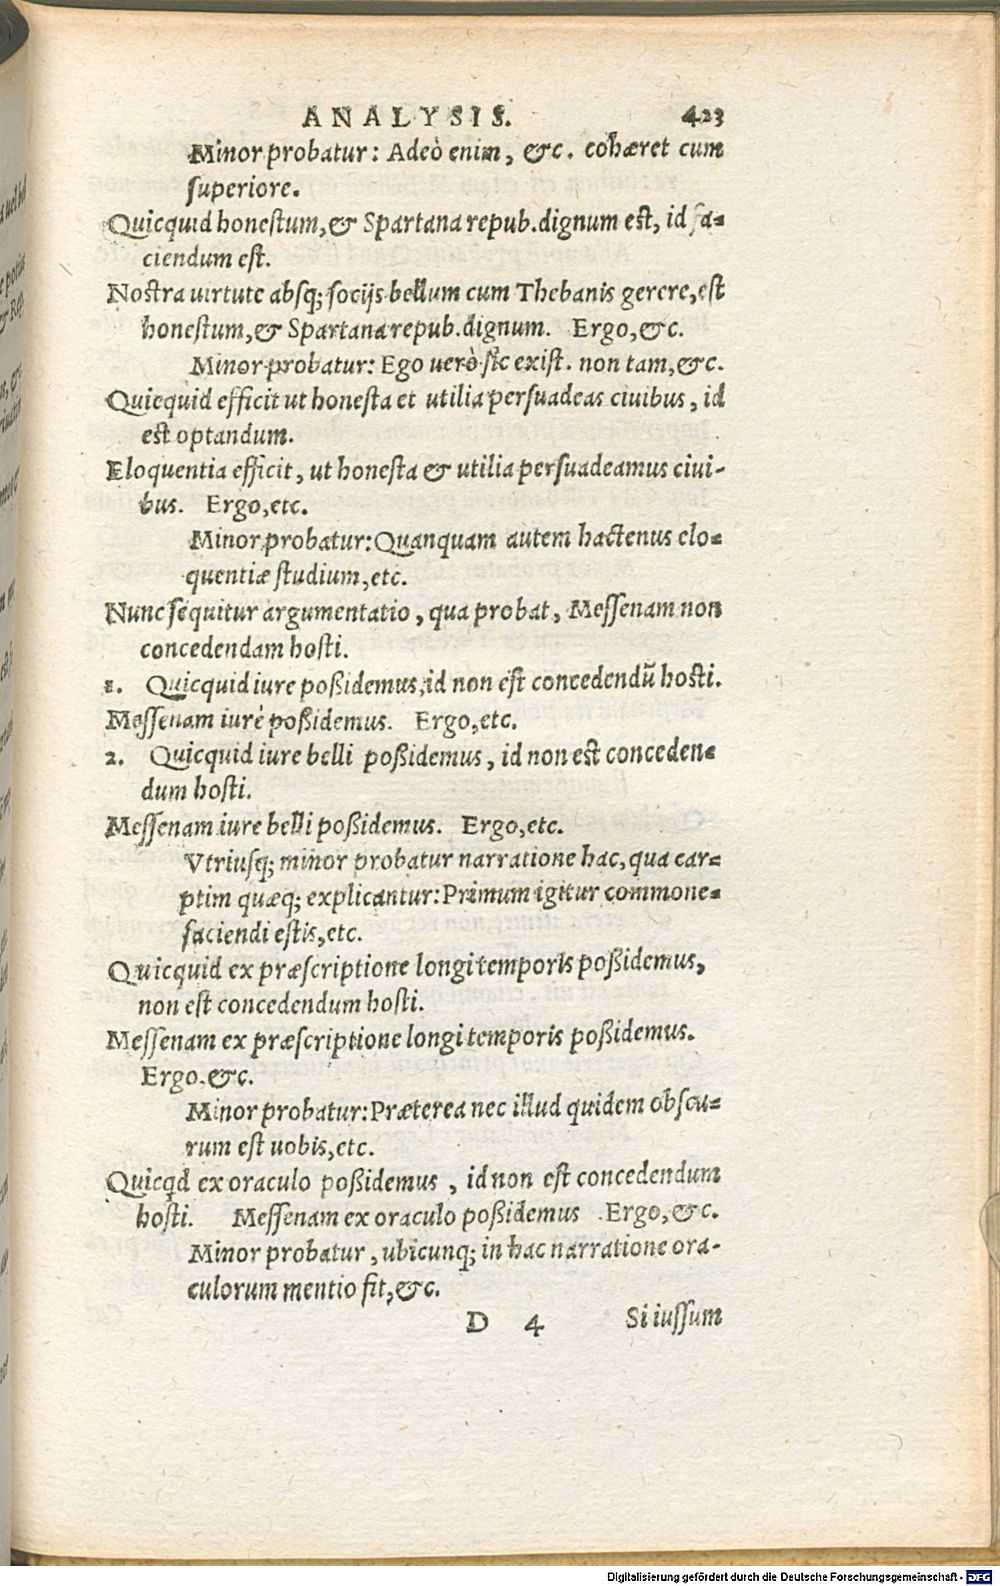 ANALYSIS. 423
Minor probatur: Adeò enim, &c. cohæret cum
superiore.
Quicquid honestum, & Spartana repub. dignum est, id fa-
ciendum est.
Nostra uirtute absq; socijs bellum cum Thebanis gerere, est
honestum, & Spartana repub. dignum. Ergo, &c.
Minor probatur: Ego uerò sic exist. non tam, &c.
Quicquid efficit ut honesta et utilia persuadeas ciuibus, id
est optandum.
Eloquentia efficit, ut honesta & utilia persuadeamus ciui-
bus. Ergo, etc.
Minor probatur: Quanquam autem hactenus elo-
quentiæ studium, etc.
Nunc sequitur argumentatio, qua probat, Messenam non
concedendam hosti.
1. Quicquid iure poßidemus, id non est concedendū hosti.
Messenam iure poßidemus. Ergo, etc.
2. Quicquid iure belli poßidemus, id non est conceden-
dum hosti.
Messenam iure belli poßidemus. Ergo, etc.
Vtriusq; minor probatur narratione hac, qua car-
ptim quæq; explicantur: Primum igitur commone-
faciendi estis, etc.
Quicquid ex præscriptione longi temporis poßidemus,
non est concedendum hosti.
Messenam ex præscriptione longi temporis poßidemus.
Ergo. &c.
Minor probatur: Præterea nec illud quidem obscu-
rum est uobis, etc.
Quicqd ex oraculo poßidemus, id non est concedendum
hosti. Messenam ex oraculo poßidemus. Ergo, &c.
Minor probatur, ubicunq; in hac narratione ora-
culorum mentio fit, &c.
D 4 Si iussum
Digitalisierung gefördert durch die Deutsche Forschungsgemeinschaft - DFG